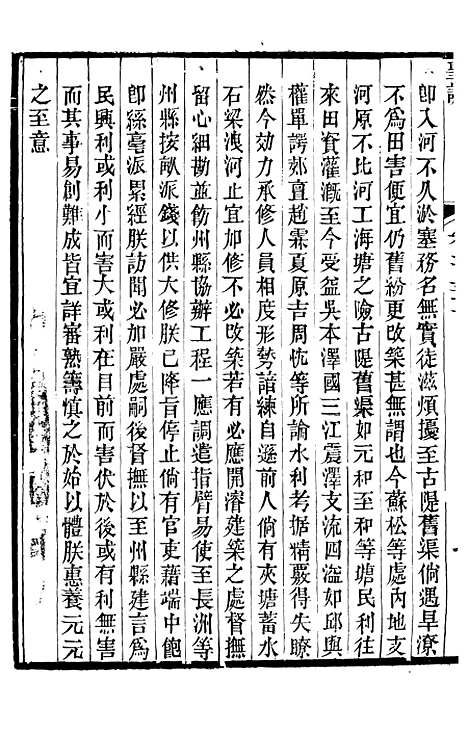 聖訓
卽入河不久淤塞務名無實徒滋煩擾至古隄舊渠倘遇旱潦
不爲田害便宜仍舊紛更改築甚無謂也今蘇松等處內地支
河原不比河工海塘之險古隄舊渠如元和至和等塘民利往
來田資灌漑至今受益吳本澤國三江震澤支流四溢如邱與
權單諤郊亶趙霖夏原吉周忱等所論水利考据精覈得失瞭
然今効力承修人員相度形勢諳練自遜前人倘有夾塘蓄水
石梁洩河止宜加修不必改築若有必應開濬建築之處督撫
留心細勘並飭州縣協辦工程一應調遣指臂易使至長洲等
州縣按畝派錢以供大修朕已降旨停止倘有官吏藉端中飽
卽絲毫派累經朕訪聞必加嚴處嗣後督撫以至州縣建言爲
民興利或利小而害大或利在目前而害伏於後或有利無害
而其事易創難成皆宜詳審熟籌慎之於始以體朕惠養元元
之至意